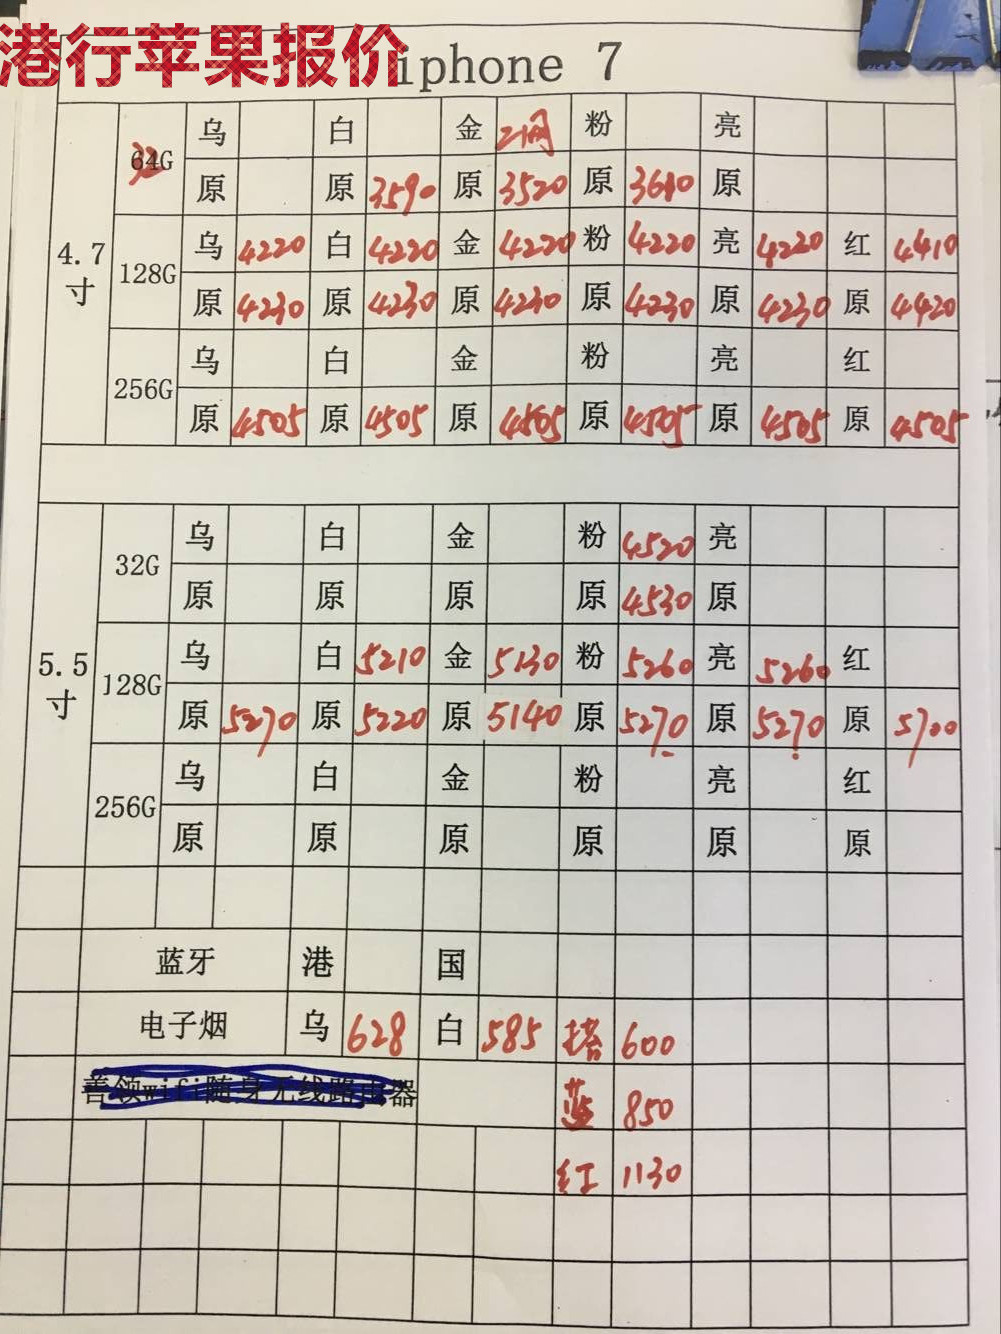 港行苹果报价
iphone 7
乌 白 金 2网 粉 亮
4.7寸 32G 原 原 3590 原 3520 原 3610 原
128G 乌 4220 白 4220 金 4220 粉 4220 亮 4220 红 4410
原 4230 原 4230 原 4230 原 4230 原 4230 原 4420
256G 乌 白 金 粉 亮 红
原 4505 原 4505 原 4505 原 4505 原 4505 原 4505
5.5寸 32G 乌 白 金 粉 4520 亮
原 原 原 原 4530 原
128G 乌 白 5210 金 5130 粉 5260 亮 5260 红
原 5270 原 5220 原 5140 原 5270 原 5270 原 5700
256G 乌 白 金 粉 亮 红
原 原 原 原 原 原
蓝牙 港 国
电子烟 乌 628 白 585 塔 600
善领wifi随身无线路由器 蓝 850
红 1130